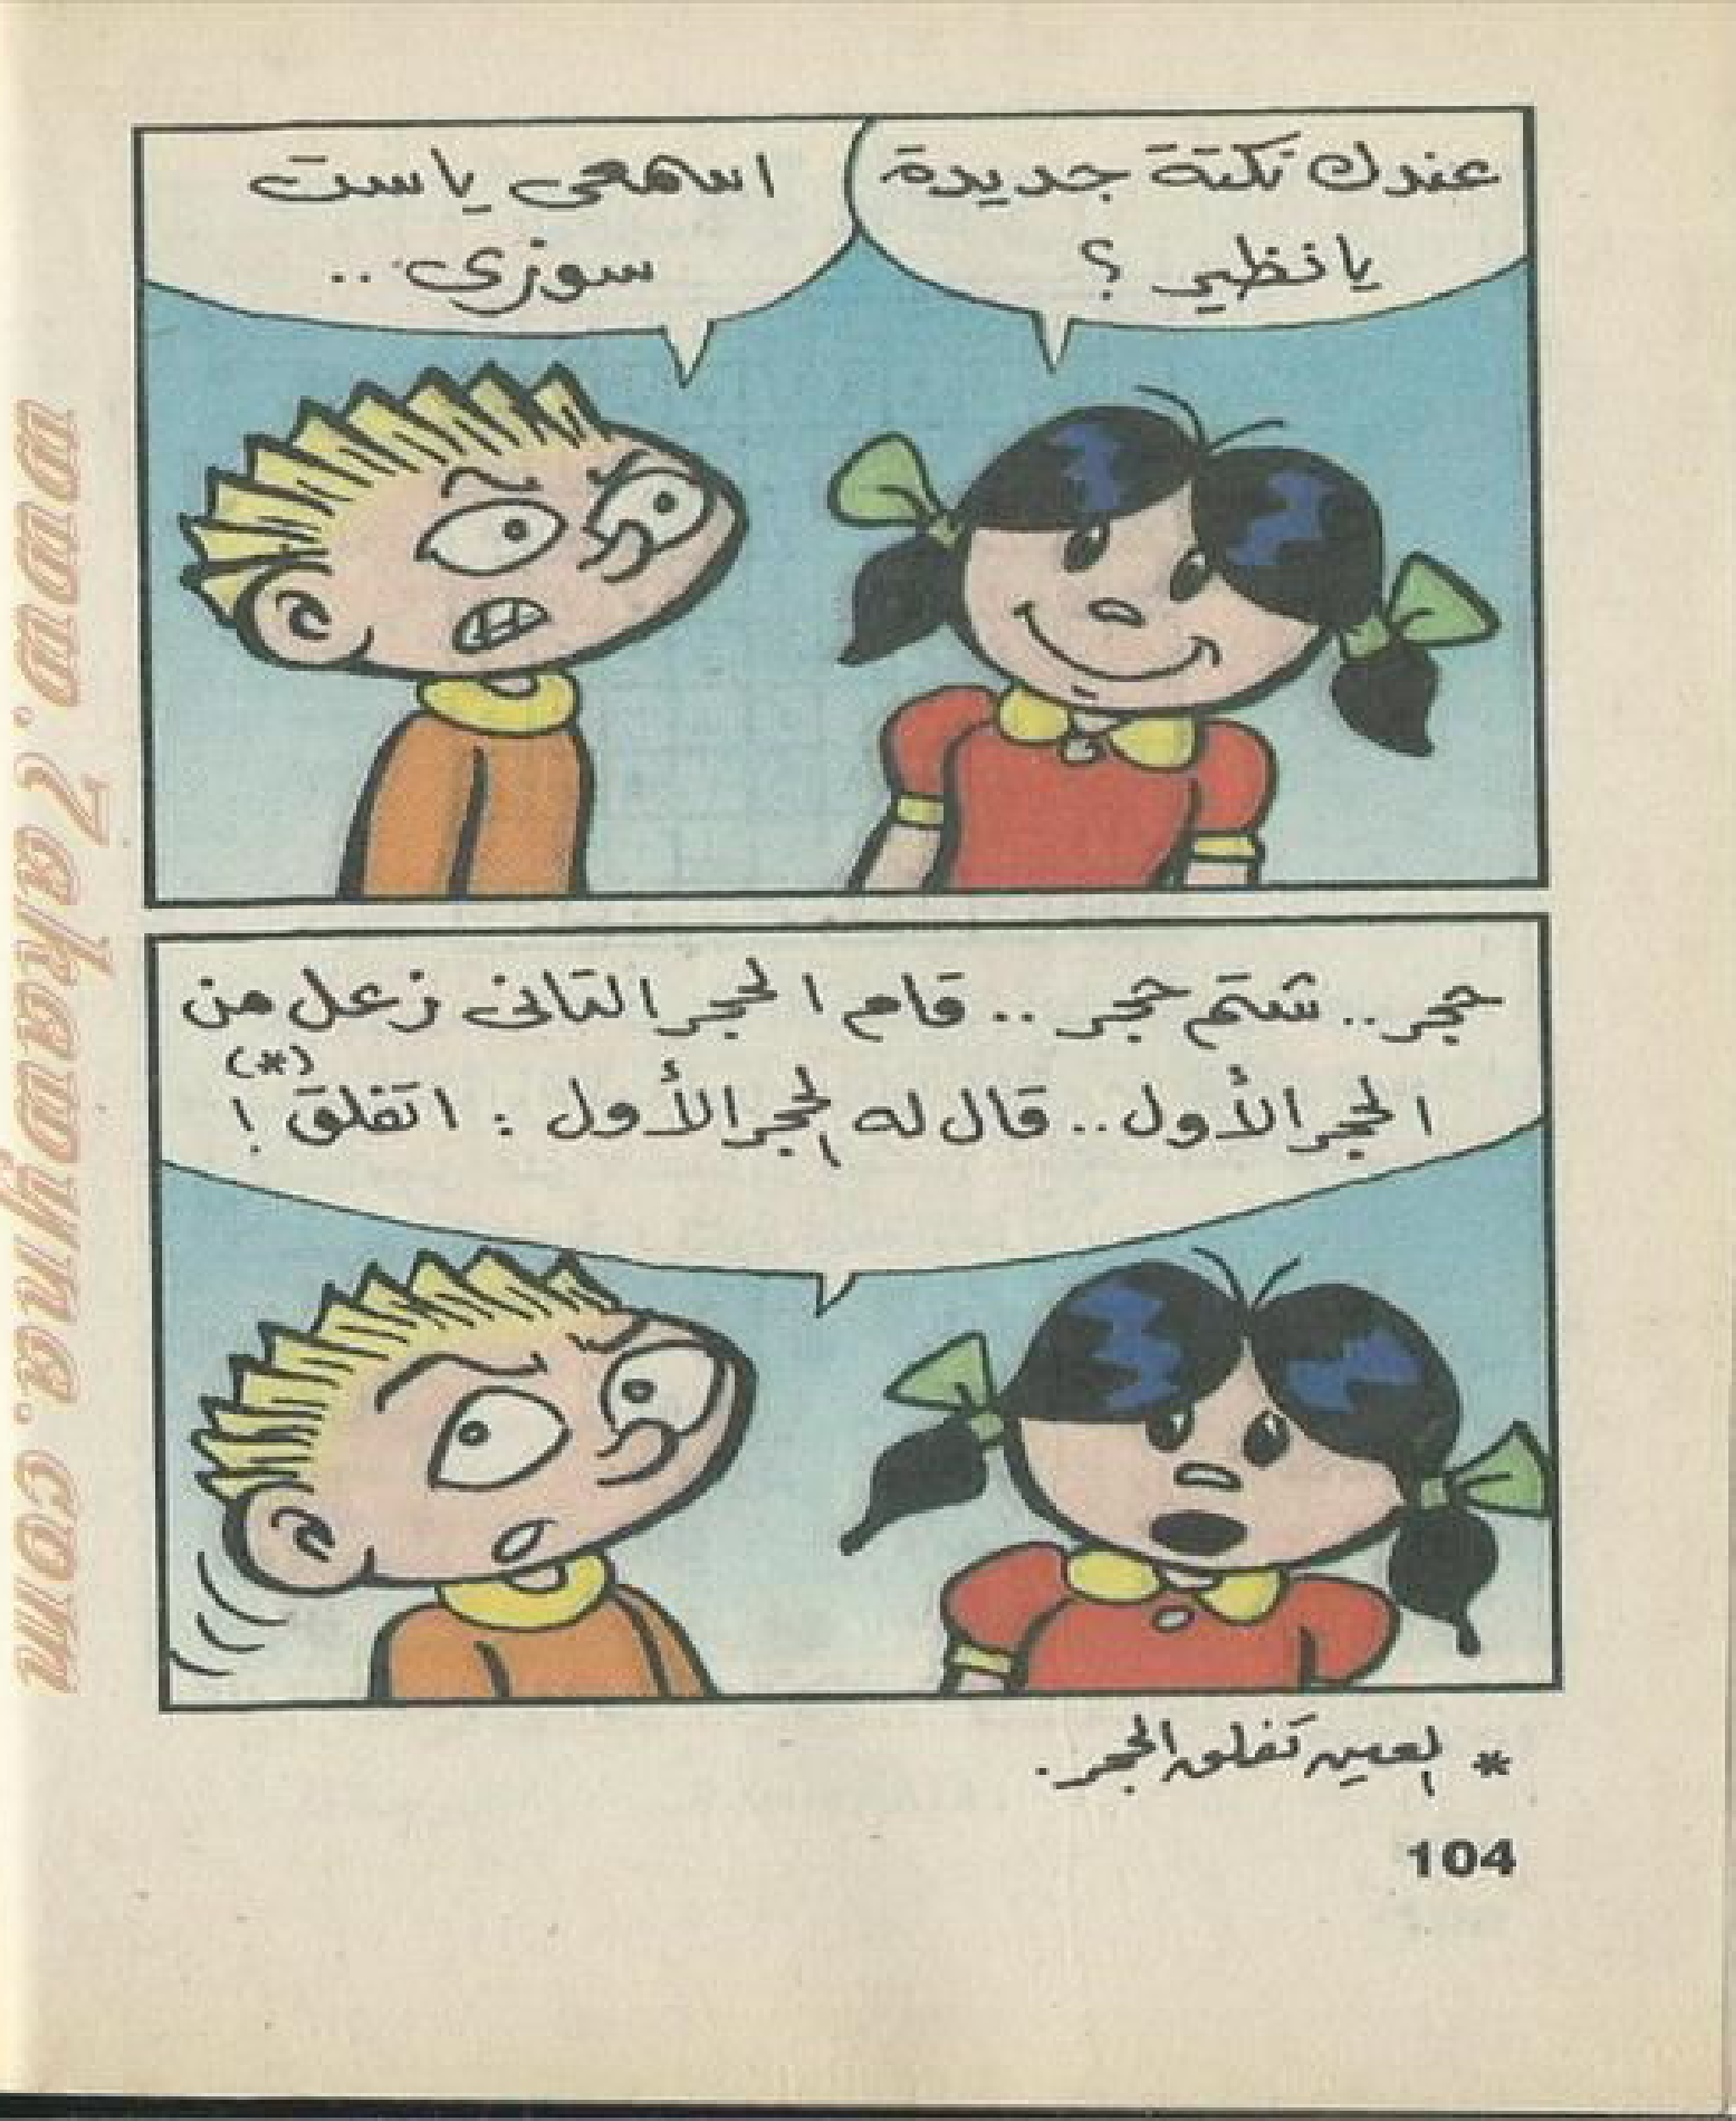 عندك نكتة جديدة
يا نظير ؟
اسمعى ياست
سوزى ..
حجر .. شتم حجر .. قام الحجر التانى زعل من
الحجر الأول .. قال له الحجر الأول : اتفلق (*) !
* العين تفلق الحجر .
104